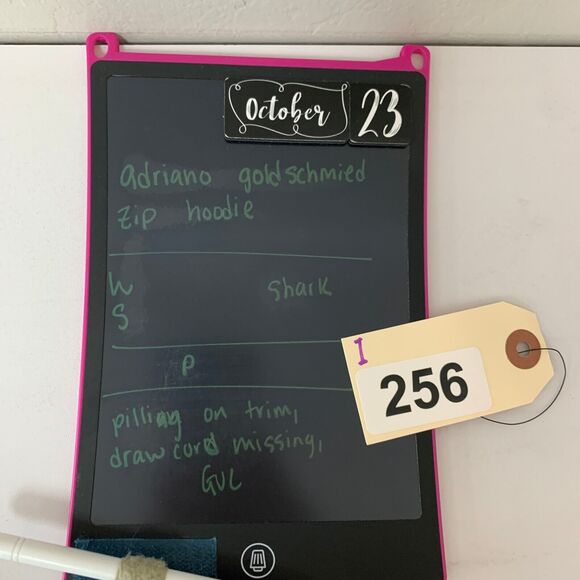 October 23
adriano goldschmied
zip hoodie
W shark
S
P
I
256
pilling on trim,
draw cord missing,
GUC